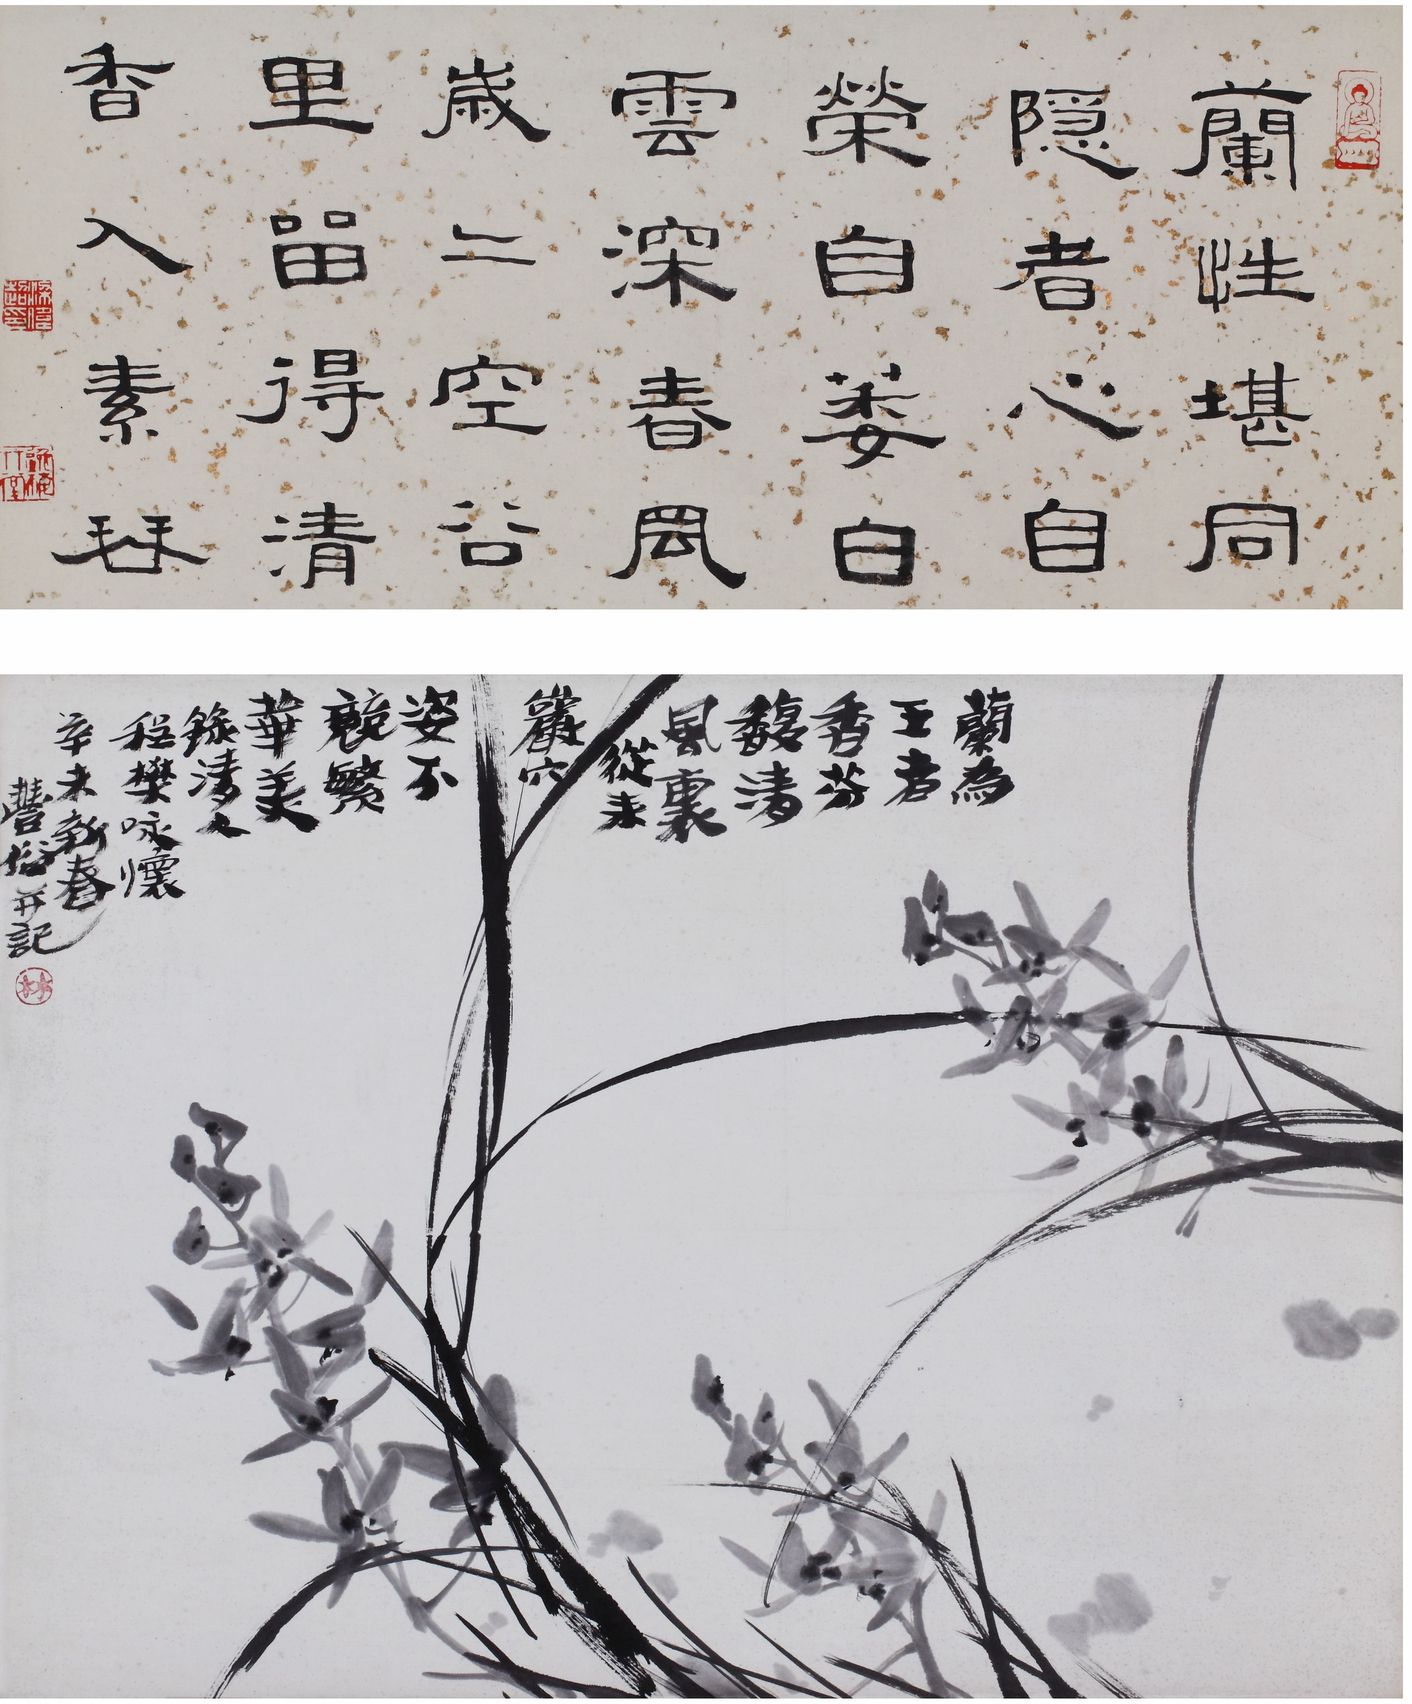 蘭性堪同
隐者心自
榮自萎白
雲深春風
歲二空谷
里留得清
香入素琹
蘭為
王者
香芬
馥清
風裏
從来
巖穴
姿不
競繁
華美
錄清人
程樊咏懷
辛未新春
豐俗并記